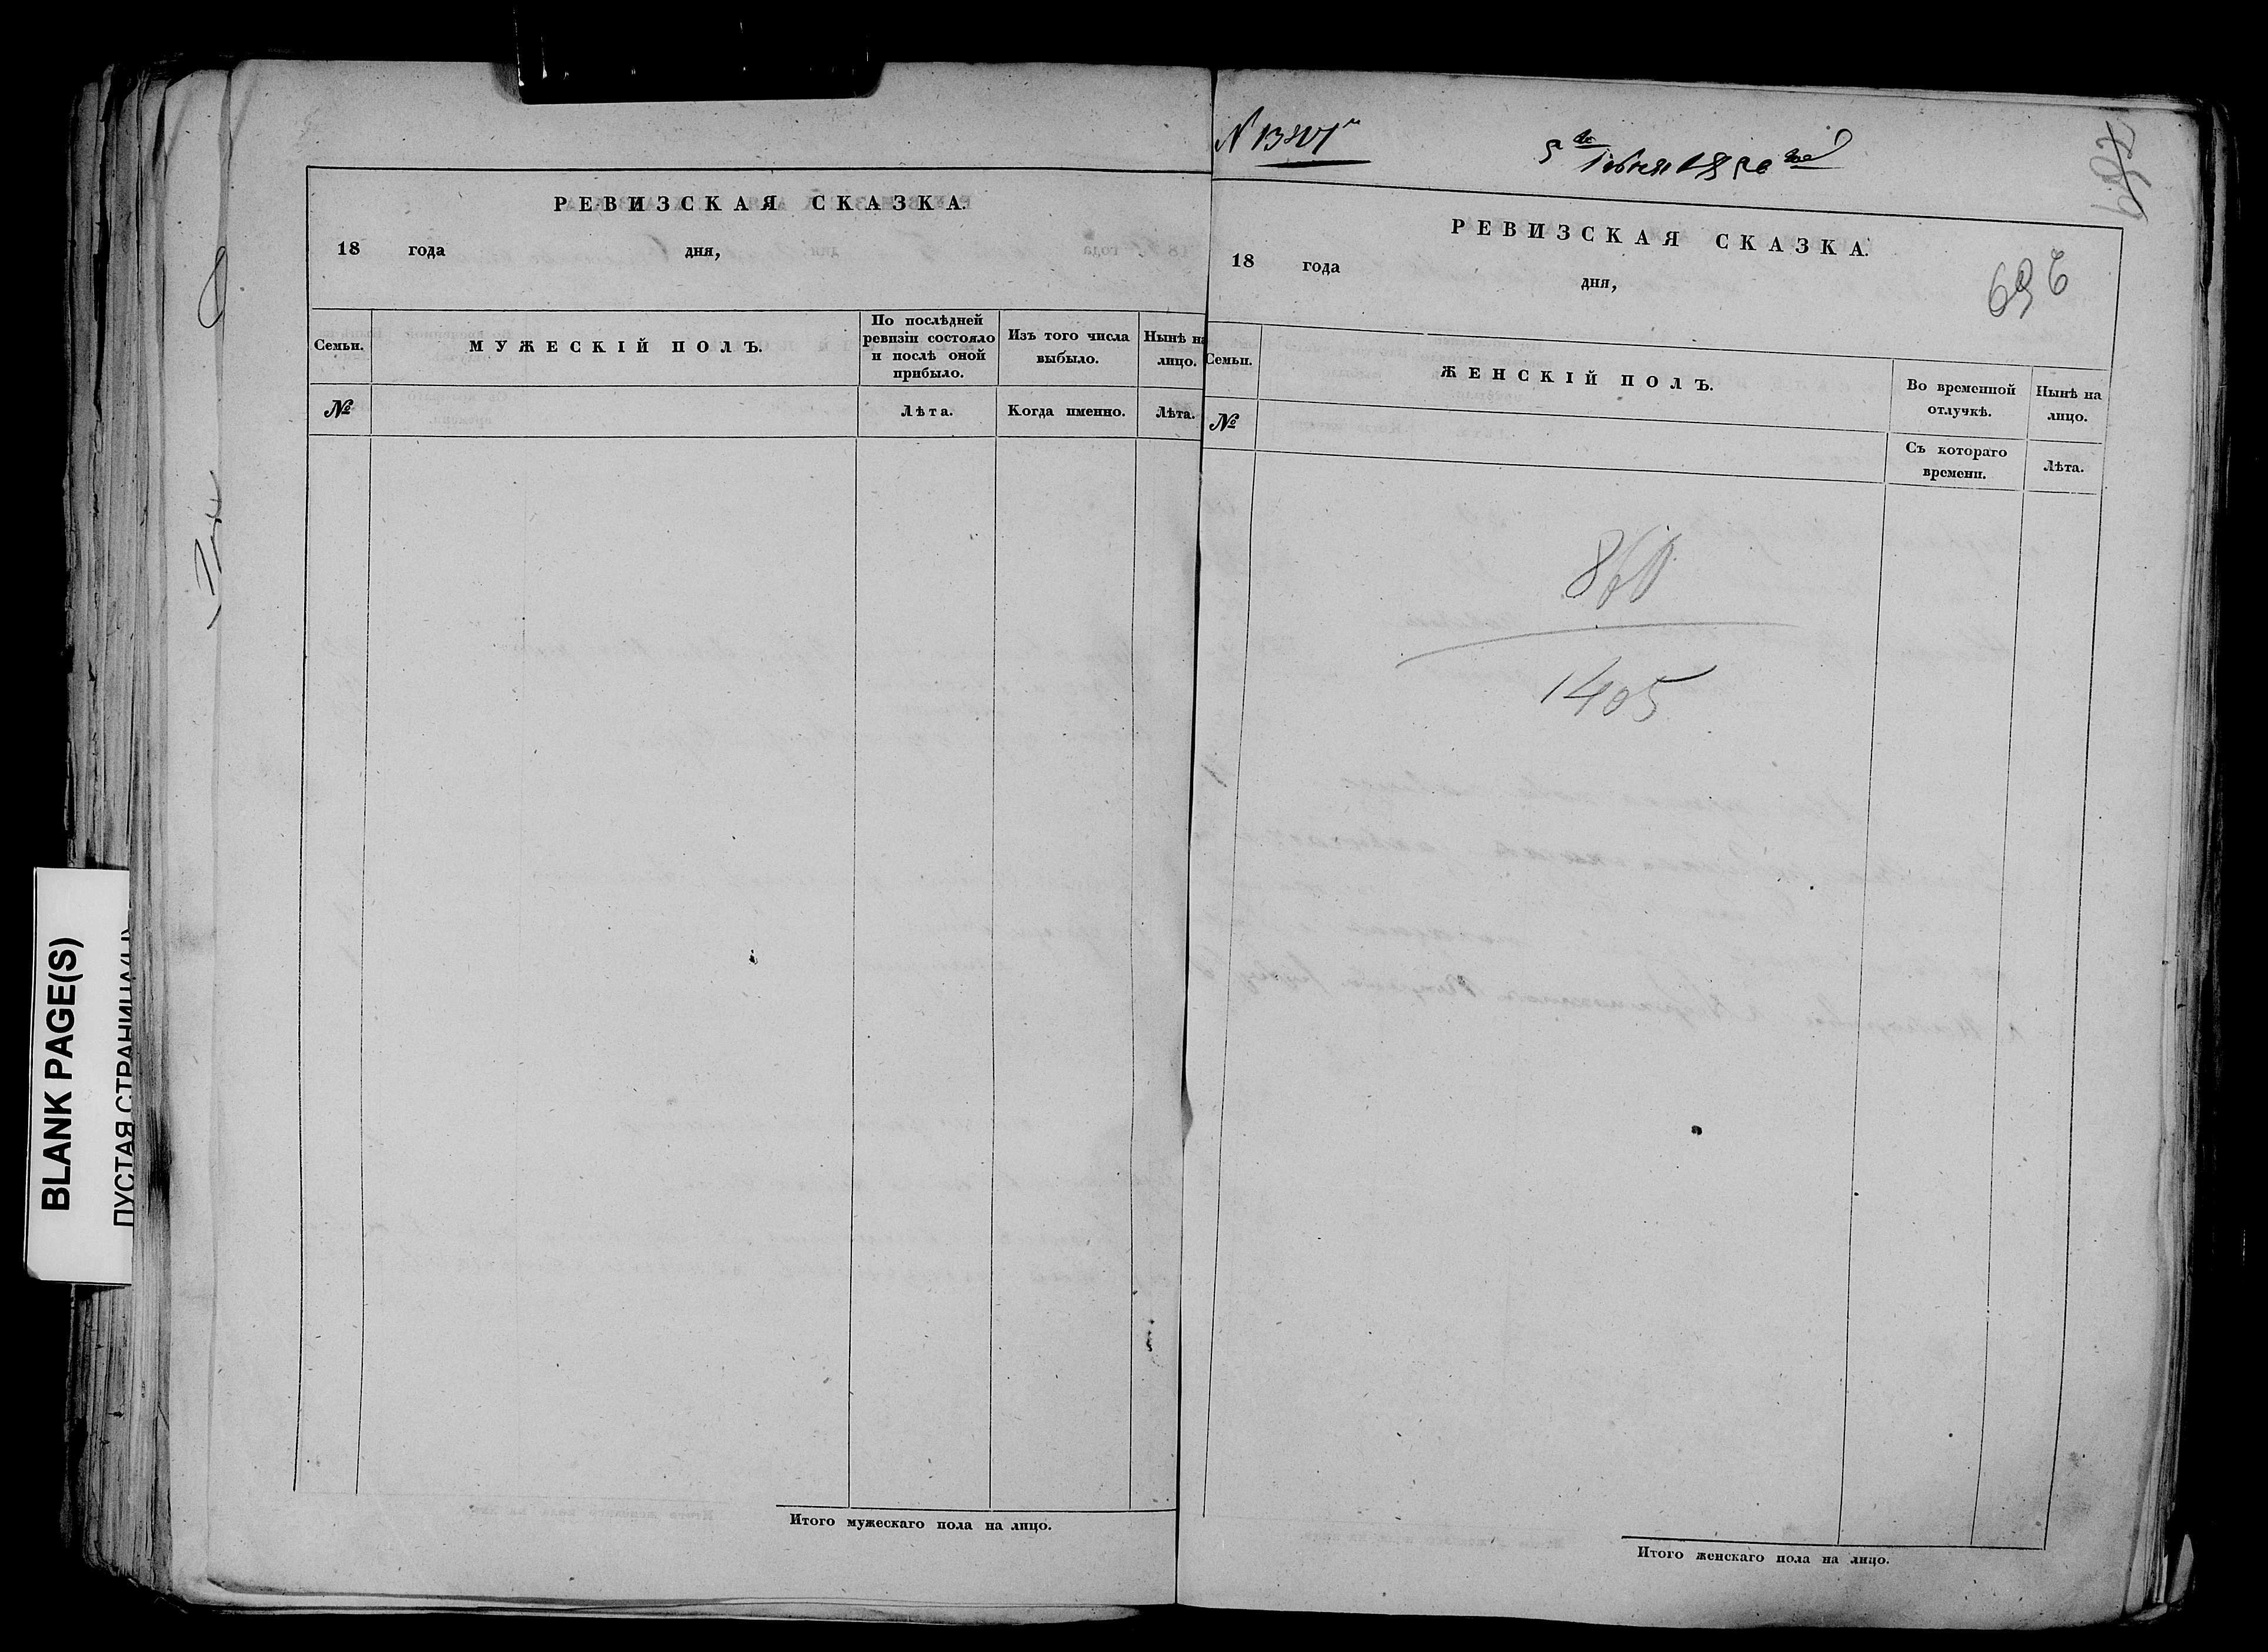 РЕВИЗСКАЯ СКАЗКА.
18 года дня,
Семьи.
МУЖЕСКІЙ ПОЛЪ.
По послѣдней
ревизіи состояло
и послѣ оной
прибыло.
Изъ того числа
выбыло.
Нынѣ на
лицо.
№
Лѣта.
Когда именно.
Лѣта.
Итого мужескаго пола на лицо.
5го Іюня 1850 года
РЕВИЗСКАЯ СКАЗКА.
18 года дня,
Семьи.
ЖЕНСКІЙ ПОЛЪ.
Во временной
отлучкѣ.
Нынѣ на
лицо.
№
Съ котораго
времени.
Лѣта.
860
1405
Итого женскаго пола на лицо.
BLANK PAGE(S)
ПУСТАЯ СТРАНИЦА(Ы)